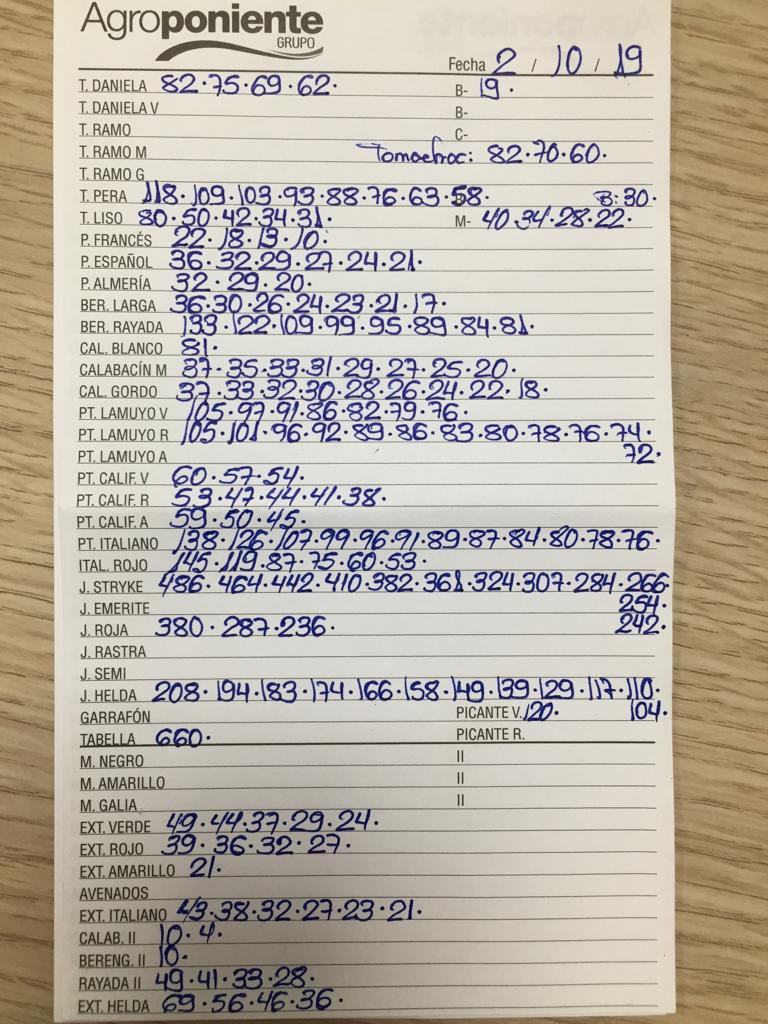 Agroponiente
GRUPO
Fecha 2 / 10 / 19
T. DANIELA 82.75.69.62. B- 19.
T. DANIELA V B-
T. RAMO C-
T. RAMO M Tomachoc: 82.70.60.
T. RAMO G
T. PERA 118.109.103.93.88.76.63.58. B: 30.
T. LISO 80.50.42.34.31. M- 40.34.28.22.
P. FRANCÉS 22.18.13.10.
P. ESPAÑOL 36.32.29.27.24.21.
P. ALMERÍA 32.29.20.
BER. LARGA 36.30.26.24.23.21.17.
BER. RAYADA 133.122.109.99.95.89.84.81.
CAL. BLANCO 81.
CALABACÍN M 37.35.33.31.29.27.25.20.
CAL. GORDO 37.33.32.30.28.26.24.22.18.
PT. LAMUYO V 105.97.91.86.82.79.76.
PT. LAMUYO R 105.101.96.92.89.86.83.80.78.76.74.
PT. LAMUYO A 72.
PT. CALIF. V 60.57.54.
PT. CALIF. R 53.47.44.41.38.
PT. CALIF. A 59.50.45.
PT. ITALIANO 138.126.107.99.96.91.89.87.84.80.78.76.
ITAL. ROJO 145.119.87.75.60.53.
J. STRYKE 486.464.442.410.382.361.324.307.284.266.
J. EMERITE 254.
J. ROJA 380.287.236. 242.
J. RASTRA
J. SEMI
J. HELDA 208.194.183.174.166.158.149.139.129.117.110.
GARRAFÓN PICANTE V. 120. 104.
TABELLA 660. PICANTE R.
M. NEGRO II
M. AMARILLO II
M. GALIA II
EXT. VERDE 49.44.37.29.24.
EXT. ROJO 39.36.32.27.
EXT. AMARILLO 21.
AVENADOS
EXT. ITALIANO 43.38.32.27.23.21.
CALAB. II 10.4.
BERENG. II 10.
RAYADA II 49.41.33.28.
EXT. HELDA 69.56.46.36.